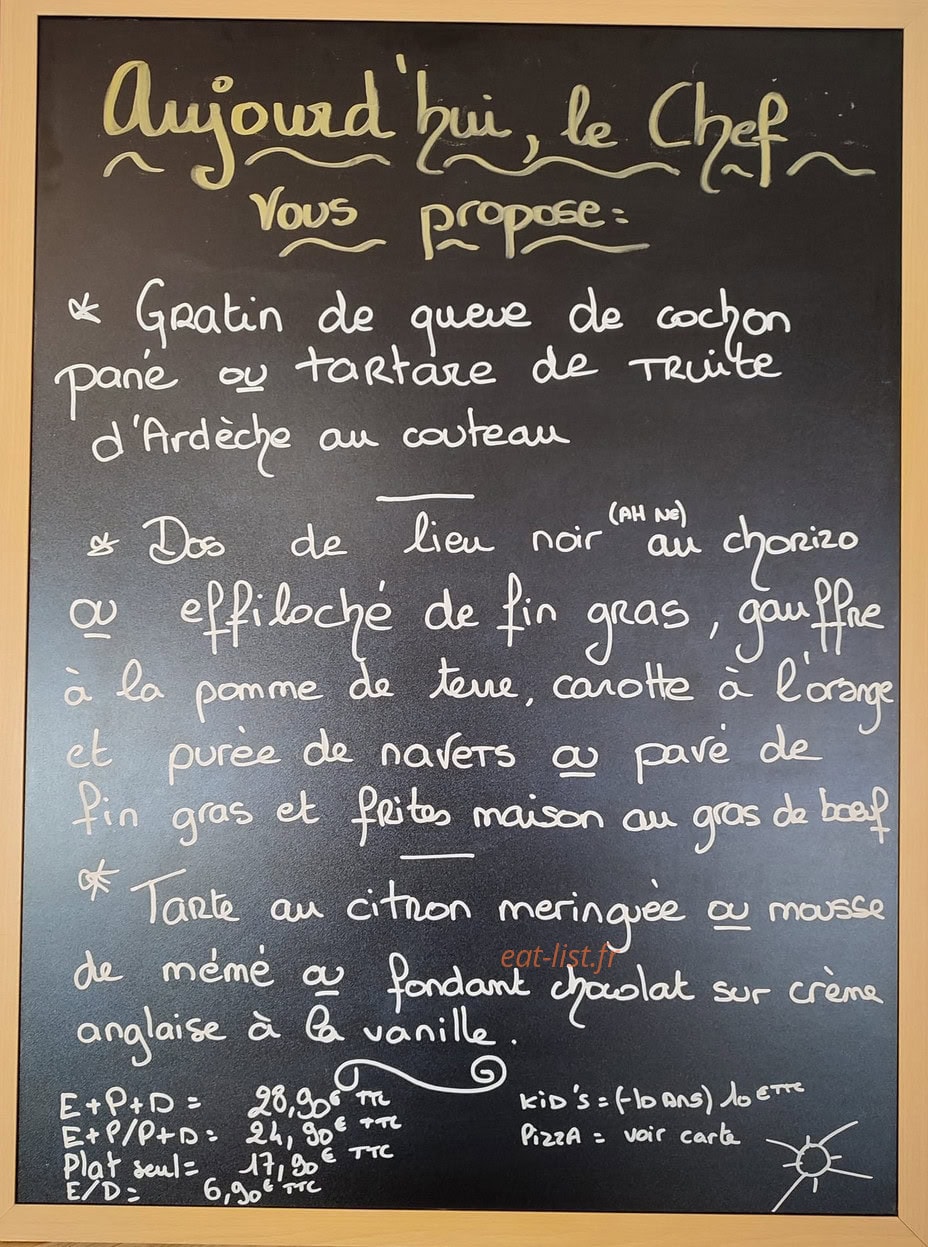 Aujourd'hui, le Chef
Vous propose:
* Gratin de queue de cochon
pané ou tartare de truite
d'Ardèche au couteau
* Dos de lieu noir (AH NE) au chorizo
ou effiloché de fin gras, gauffre
à la pomme de terre, carotte à l'orange
et purèe de navets ou pavé de
fin gras et frites maison au gras de bœuf
* Tarte au citron meringuèe ou mousse
de mémé ou fondant chocolat sur crème
eat-list.fr
anglaise à la vanille.
E+P+D = 28,90€ TTC
E+P/P+D = 24,90€ TTC
Plat seul = 17,90€ TTC
E/D = 6,90€ TTC
KiD'S = (-10 ANS) 10€ TTC
PizzA = voir carte